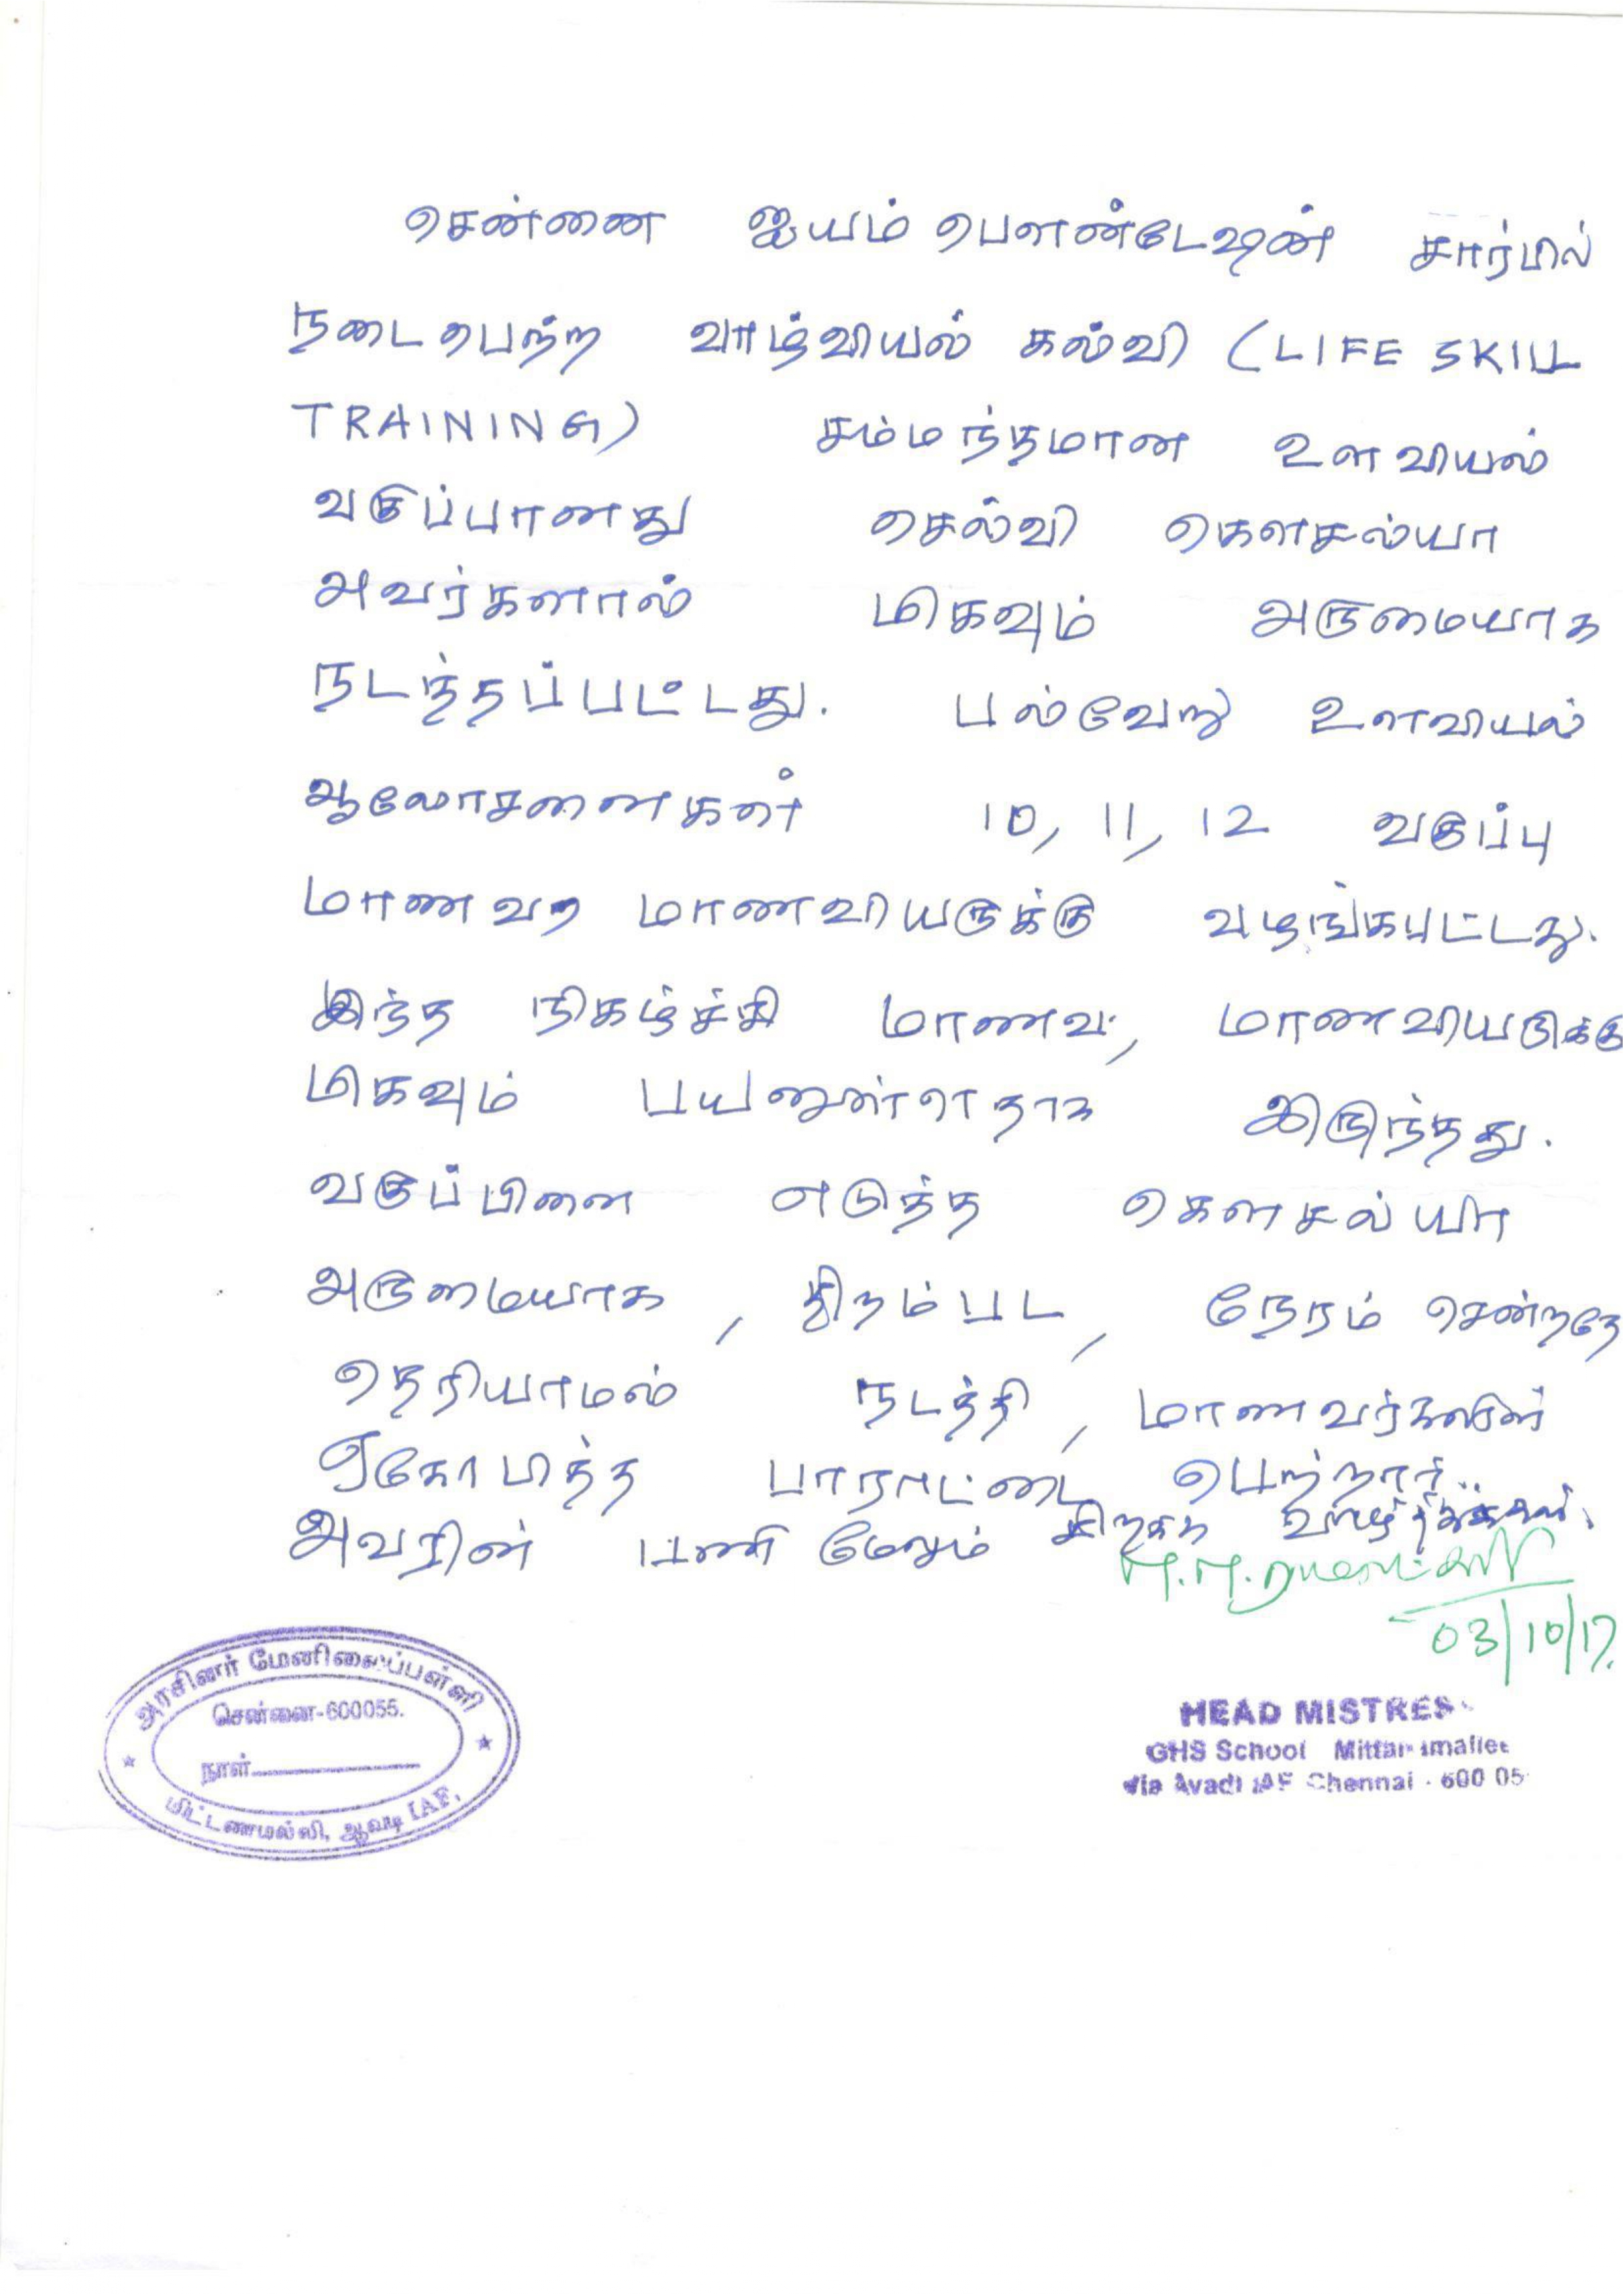 சென்னை ஐயம் பௌண்டேஷன் சார்பில்
நடைபெற்ற வாழ்வியல் கல்வி (LIFE SKILL
TRAINING) சம்மந்தமான உளவியல்
வகுப்பானது செல்வி கௌசல்யா
அவர்களால் மிகவும் அருமையாக
நடத்தப்பட்டது. பல்வேறு உளவியல்
ஆலோசனைகள் 10, 11, 12 வகுப்பு
மாணவ மாணவியருக்கு வழங்கபட்டது.
இந்த நிகழ்ச்சி மாணவ, மாணவியருக்கு
மிகவும் பயனுள்ளதாக இருந்தது.
வகுப்பினை எடுத்த கௌசல்யா
அருமையாக, திறம்பட, நேரம் சென்றதே
தெரியாமல் நடத்தி, மாணவர்களின்
ஏகோபித்த பாராட்டை பெற்றார்.
அவரின் பணி மேலும் சிறக்க வாழ்த்துக்கள்.
03/10/17.
அரசினர் மேனிலைப்பள்ளி
சென்னை-600055.
நாள்
மிட்டனமல்லி, ஆவடி IAF,
HEAD MISTRES
GHS School
Via Avadi IAF Chennai - 600 05